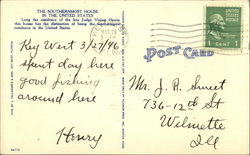 THE SOUTHERNMOST HOUSE
IN THE UNITED STATES
Long the residence of the late Judge Vining Harris
this house has the distinction of being the southernmost
residence in the United States.
Key West 3/27/46
spent day here
good fishing
around here
Henry
POST CARD
1 CENT 1
Mr. J. R. Sweet
736-12th St
Wilmette
Ill